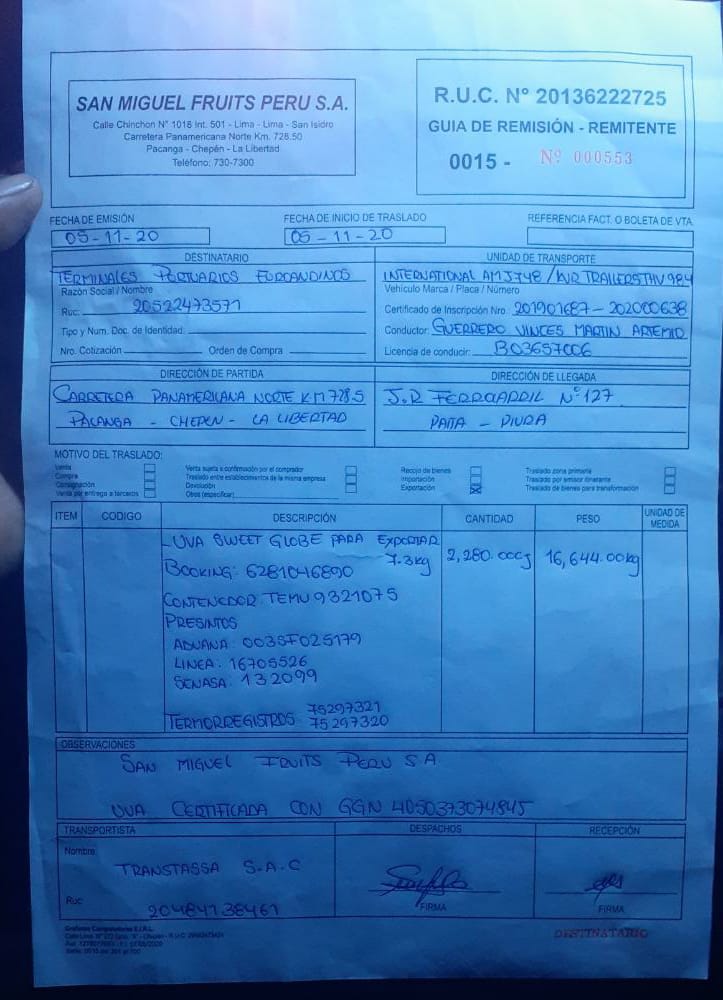 SAN MIGUEL FRUITS PERU S.A.
Calle Chinchon N° 1018 Int. 501 - Lima - Lima - San Isidro
Carretera Panamericana Norte Km. 728.50
Pacanga - Chepén - La Libertad
Teléfono: 730-7300
R.U.C. N° 20136222725
GUIA DE REMISIÓN - REMITENTE
0015 - Nº 000553
FECHA DE EMISIÓN
05-11-20
FECHA DE INICIO DE TRASLADO
05-11-20
REFERENCIA FACT. O BOLETA DE VTA.
DESTINATARIO
TERMINALES PORTUARIOS EUROANDINOS
Razón Social / Nombre
Ruc: 20522473571
Tipo y Num. Doc. de Identidad:
Nro. Cotización Orden de Compra
UNIDAD DE TRANSPORTE
INTERNATIONAL AMJ748 / AIR TRAILERS THV 984
Vehículo Marca / Placa / Número
Certificado de Inscripción Nro. 201901687 - 202000638
Conductor: GUERRERO VINCES MARTIN ARTEMIO
Licencia de conducir: B03657006
DIRECCIÓN DE PARTIDA
CARRETERA PANAMERICANA NORTE KM 728.5
PACANGA - CHEPEN - LA LIBERTAD
DIRECCIÓN DE LLEGADA
J.R FERROARRIL N° 127
PAITA - PIURA
MOTIVO DEL TRASLADO:
Venta
Compra
Consignación
Venta por entrega a terceros
Venta sujeta a confirmación por el comprador
Traslado entre establecimientos de la misma empresa
Devolución
Otros (especificar)
Recojo de bienes
Importación
Exportación
Traslado zona primaria
Traslado por emisor itinerante
Traslado de bienes para transformación
ITEM CODIGO DESCRIPCIÓN CANTIDAD PESO UNIDAD DE MEDIDA
- UVA SWEET GLOBE PARA EXPORTAR
7.3kg 2,280.00cj 16,644.00kg
BOOKING: 6281046890
CONTENEDOR: TEMU9321075
PRESINTOS
ADUANA: 003SF025179
LINEA: 16705526
SENASA: 132099
TERMORREGISTROS 75297321
75297320
OBSERVACIONES
SAN MIGUEL FRUITS PERU S.A
UVA CERTIFICADA CON GGN 4050373074845
TRANSPORTISTA
Nombre:
TRANSTASSA S.A.C
Ruc: 20484138461
DESPACHOS
FIRMA
RECEPCIÓN
FIRMA
DESTINATARIO